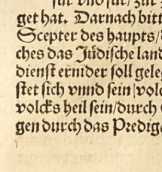 für vnd für/ zur
get hat. Darnach bitt
Scepter des haupts/
ches das Jüdische land
dienst ernider soll gele
stet sich vnnd sein volc
volcks heil sein/durch
gen durch das Predig